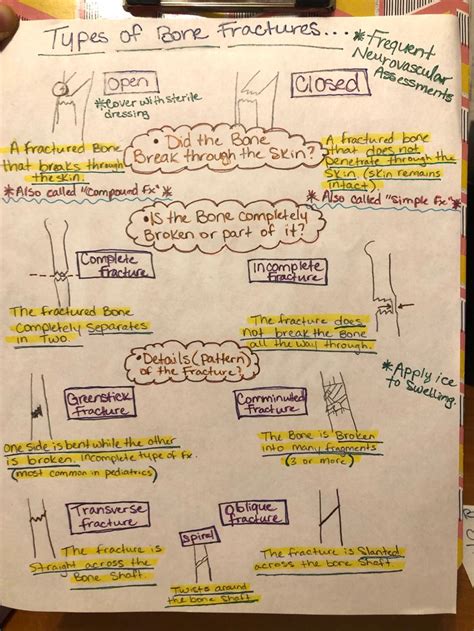 Types of Bone Fractures...
*Frequent
Neurovascular
Assessments
Open
*Cover with sterile
dressing
Closed
A fractured Bone
that breaks through
the skin.
*Also called "Compound fx"*
• Did the Bone
Break through the Skin?
A fractured bone
that does not
penetrate through the
skin (skin remains
intact).
*Also called "Simple Fx"*
• Is the Bone completely
Broken or part of it?
Complete
Fracture
The fractured Bone
Completely Separates
in Two.
Incomplete
fracture
The fracture does
not break the Bone
all the way through.
• Details (pattern)
of the Fracture?
*Apply ice
to Swelling.
Greenstick
fracture
One side is bent while the other
is broken. Incomplete type of fx.
(most common in pediatrics)
Comminuted
fracture
The Bone is Broken
into many fragments
(3 or more)
Transverse
fracture
The fracture is
Straight across the
Bone Shaft.
Spiral
Twists around
the bone Shaft
Oblique
fracture
The fracture is Slanted
across the bone Shaft.